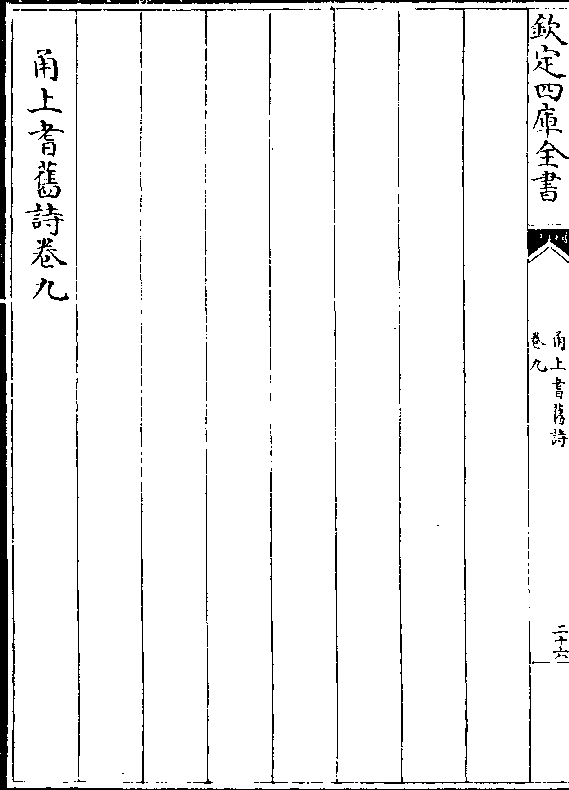 欽定四庫全書
甬上耆舊詩
卷九
二十六
甬上耆舊詩卷九